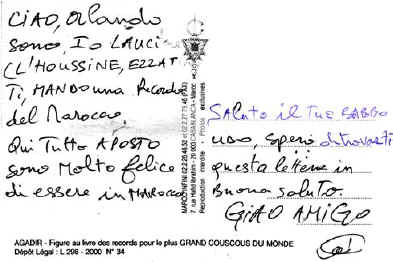 CIAO, Orlando
sono, Io LAUCI
(L'HOUSSINE, EZZAT
Ti, MANDO una Ricordo
del Marocco
Qui TUTTO APOSTO
sono MOLTO felice
di essere in MAROCCO
SALUTO il TUO
UNO, spero di trovarti
questa lettera in
Buona saluto.
CIAO AMIGO
Reproduction interdite - Photos exclusives
AGADIR - Figure au livre des records pour le plus GRAND COUSCOUS DU MONDE
Dépôt Légal : L 296 - 2000 N° 34